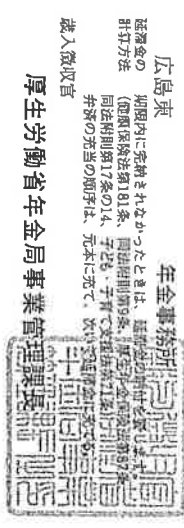 広島東 年金事務所
延滞金の 期限内に完納されなかったときは、延滞金の納付を要します。
計算方法 (健康保険法第181条、同法附則第9条、厚生年金保険法第87条、
同法附則第17条の14、子ども・子育て支援法第71条)
弁済の充当の順序は、元本に充て、次いで延滞金に充てる。
歳入徴収官
厚生労働省年金局事業管理課長